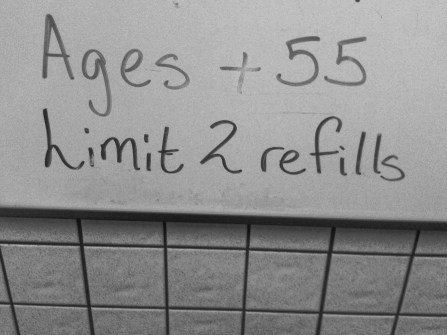 Ages + 55
Limit 2 refills